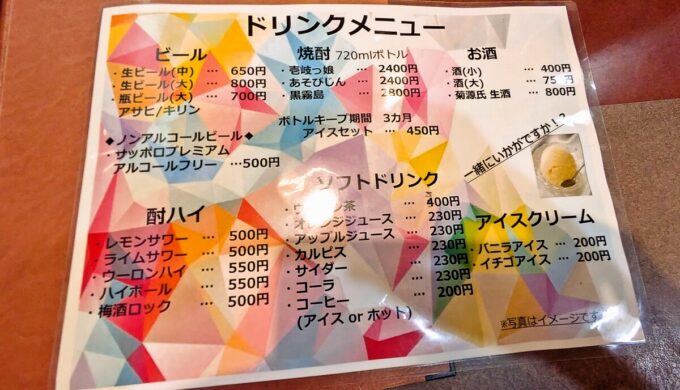 ドリンクメニュー
ビール
・生ビール(中) … 650円
・生ビール(大) … 800円
・瓶ビール(大) … 700円
アサヒ/キリン
◆ノンアルコールビール◆
・サッポロプレミアム
アルコールフリー …500円
焼酎 720mlボトル
・壱岐っ娘 … 2400円
・あそびじん … 2400円
・黒霧島 … 2800円
ボトルキープ期間 3カ月
アイスセット … 450円
お酒
・酒(小) … 400円
・酒(大) …
・菊源氏 生酒 … 800円
一緒にいかがですか！？
酎ハイ
・レモンサワー … 500円
・ライムサワー … 500円
・ウーロンハイ … 550円
・ハイボール … 550円
・梅酒ロック … 500円
ソフトドリンク
茶 … 400円
・オレンジジュース … 230円
・アップルジュース … 230円
・カルピス … 230円
・サイダー … 230円
・コーラ … 230円
・コーヒー … 200円
(アイス or ホット)
アイスクリーム
・バニラアイス … 200円
・イチゴアイス … 200円
※写真はイメージです